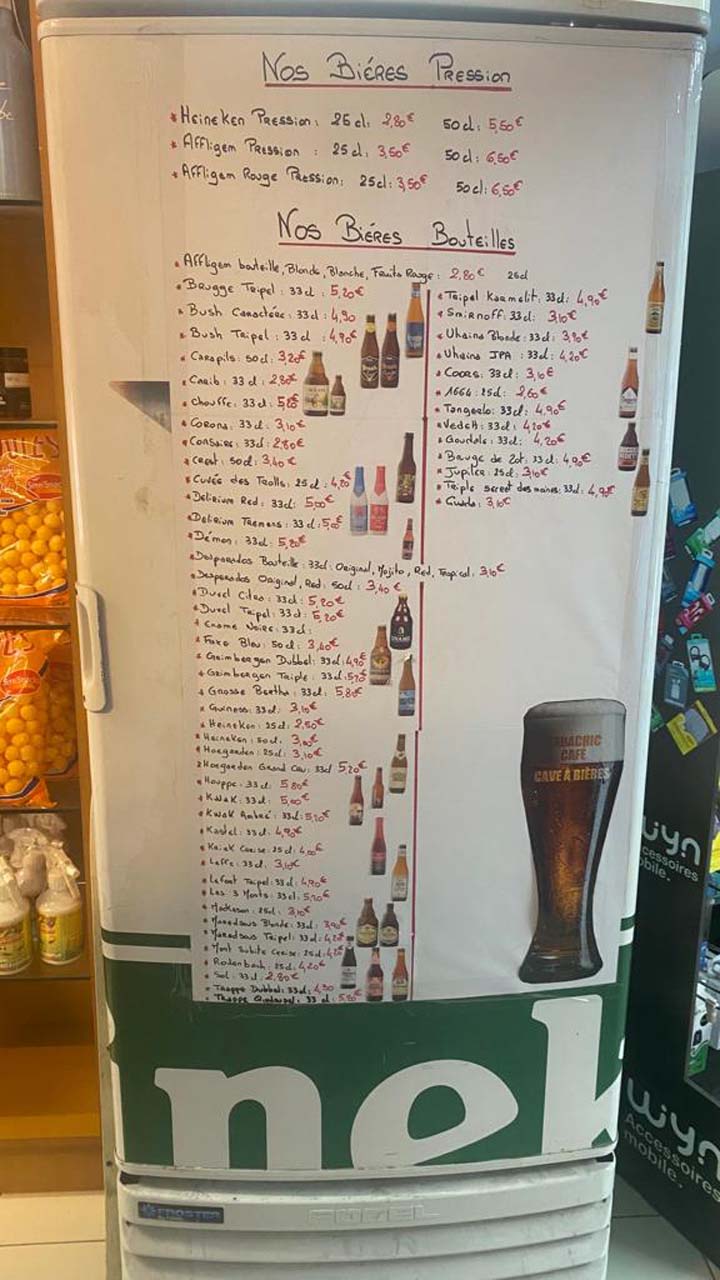 Nos Biéres Pression
* Heineken Pression: 25 cl: 2,80€ 50 cl: 5,50€
* Affligem Pression : 25 cl: 3,50€ 50 cl: 6,50€
* Affligem Rouge Pression: 25 cl: 3,50€ 50 cl: 6,50€
Nos Biéres Bouteilles
* Affligem bouteille, Blonde, Blanche, Fruits Rouge: 2,80€ 25cl
* Brugge Tripel: 33 cl: 5,20€
* Bush Caractère: 33 cl: 4,90
* Bush Tripel: 33 cl: 4,90€
* Carapils: 50 cl: 3,20€
* Carib: 33 cl: 2,80€
* Chouffe: 33 cl:
* Corona: 33 cl: 3,10€
* Corsaire: 33 cl: 2,80€
* Crest: 50 cl: 3,40€
* Cuvée des Trolls: 25 cl: 4,20
* Delirium Red: 33 cl: 5,00€
* Delirium Tremens: 33 cl: 5,00€
* Démon: 33 cl: 5,20€
* Desperados Bouteille: 33 cl: Original, Mojito, Red, Tropical: 3,10€
* Desperados Original, Red: 50 cl: 3,40€
* Duvel Citra: 33 cl: 5,20€
* Duvel Tripel: 33 cl: 5,20€
* Ename Noire: 33 cl:
* Faxe Bleu: 50 cl: 3,40€
* Grimbergen Dubbel: 33 cl: 4,90€
* Grimbergen Triple: 33 cl:
* Grosse Bertha: 33 cl: 5,80€
* Guiness: 33 cl: 3,10€
* Heineken: 25 cl: 2,50€
* Heineken: 50 cl:
* Hoegaarden: 25 cl: 3,10€
* Hoegaarden Grand Cru: 33 cl 5,20€
* Houppe: 33 cl: 5,80€
* Kwak: 33 cl: 5,00€
* Kwak Ambré: 33 cl: 5,20€
* Kastel: 33 cl: 4,90€
* Kriek Cerise: 25 cl:
* Leffe: 33 cl: 3,10€
* Lefort Tripel: 33 cl: 4,90€
* Les 3 Monts: 33 cl: 5,20€
* Mackeson: 25 cl: 3,10€
* Maredsous Blonde: 33 cl: 3,90€
* Maredsous Tripel: 33 cl: 4,20€
* Mort Subite Cerise: 25 cl: 4,20
* Rodenbach: 25 cl: 4,20€
* Sol: 33 cl: 2,80€
* Trappe Dubbel: 33 cl: 4,90
* Trappe Quadrupel: 33 cl: 5,20€
* Tripel Karmelit: 33 cl: 4,90€
* Smirnoff: 33 cl: 3,10€
* Uhaina Blonde: 33 cl: 3,90€
* Uhaina IPA: 33 cl: 4,20€
* Coors: 33 cl: 3,10€
* 1664: 25 cl: 2,60€
* Tongerlo: 33 cl: 4,90€
* Vedett: 33 cl: 4,20€
* Goudale: 33 cl: 4,20€
* Bruge de Zot: 33 cl: 4,90€
* Jupiler: 25 cl: 3,10€
* Triple secret des moines: 33 cl: 4,90€
* Guida: 3,10€
CAFE
CAVE À BIÈRES
nek
FROSTER
wiyn
Accessoires
mobile.
wiyn
Accessoires
mobile.